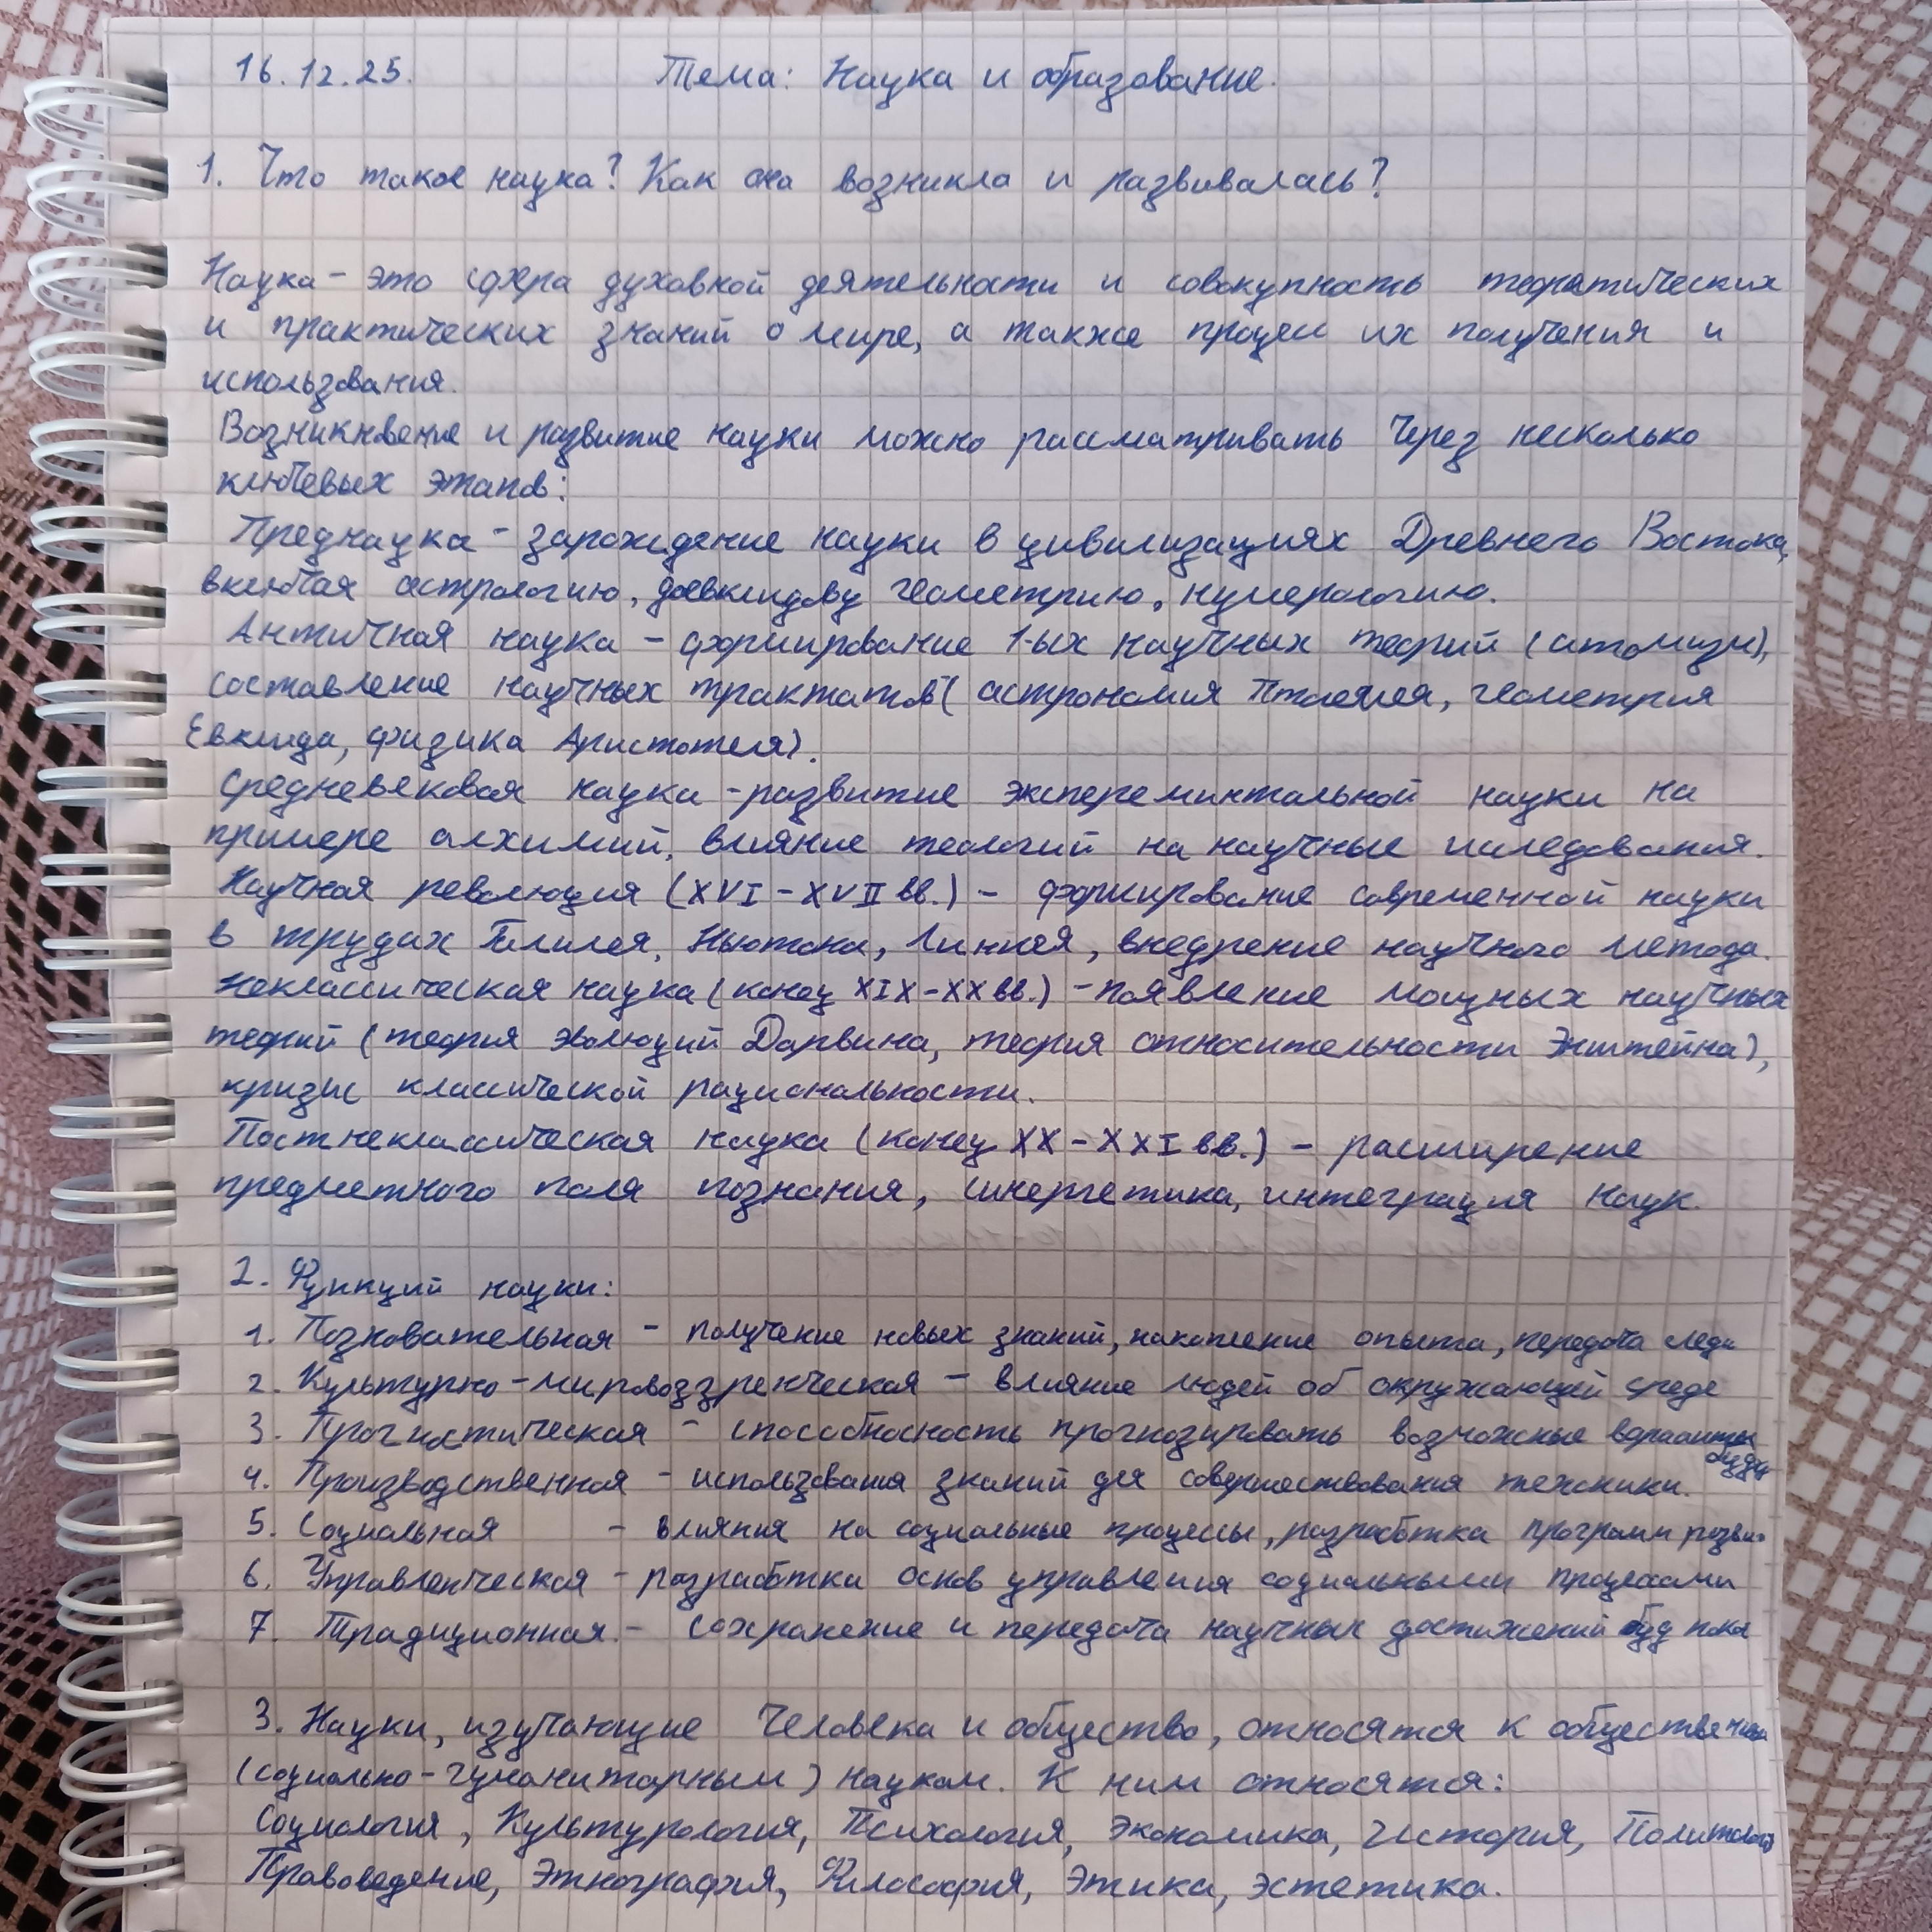 16.12.25. Тема: Наука и образование.
1. Что такое наука? Как она возникла и развивалась?
Наука - это сфера духовной деятельности и совокупность теоретических
и практических знаний о мире, а также процесс их получения и
использования.
Возникновение и развитие науки можно рассматривать через несколько
ключевых этапов:
Преднаука - зарождение науки в цивилизациях Древнего Востока,
включая астрологию, доевклидову геометрию, нумерологию.
Античная наука - формирование 1-ых научных теорий (атомизм),
составление научных трактатов (астрономия Птолемея, геометрия
Евклида, физика Аристотеля).
Средневековая наука - развитие экспереминтальной науки на
примере алхимий, влияние теологий на научные иследования.
Научная революция (XVI - XVII вв.) - формирование современной науки
в трудах Галилея, Ньютона, Линнея, внедрение научного метода.
Неклассическая наука (конец XIX - XX вв.) - появление мощных научных
теорий (теория эволюций Дарвина, теория относительности Энштейна),
кризис классической рациональности.
Постнеклассическая наука (конец XX - XXI вв.) - расширение
предметного поля познания, синергетика, интеграция наук.
2. Функций науки:
1. Познавательная - получение новых знаний, накопление опыта, передача
2. Культурно-мировоззренческая - влияние людей об окружающей среде
3. Прогностическая - способносность прогнозировать возможные варианты
4. Производственная - использования знаний для совершествования техники.
5. Социальная - влияния на социальные процессы, разработка программ разви-
6. Управленческая - разработка основ управления социальными процессами
7. Традиционная. - сохранение и передача научных достижений буд пока
3. Науки, изучающие человека и общество, относятся к
(социально-гуманитарным) наукам. К ним относятся:
Социология, Культурология, Психология, Экономика, История,
Правоведение, Этнография, Философия, Этика, Эстетика.